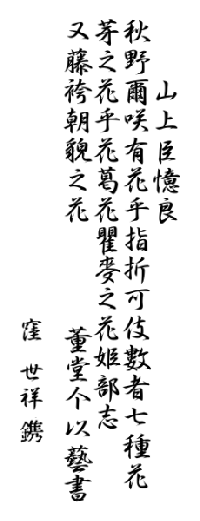 山上臣憶良
秋野爾咲有花乎指折可伎數者七種花
芽之花乎花葛花瞿麥之花姫部志
又藤袴朝貌之花
董堂个以藝書
窪世祥鐫